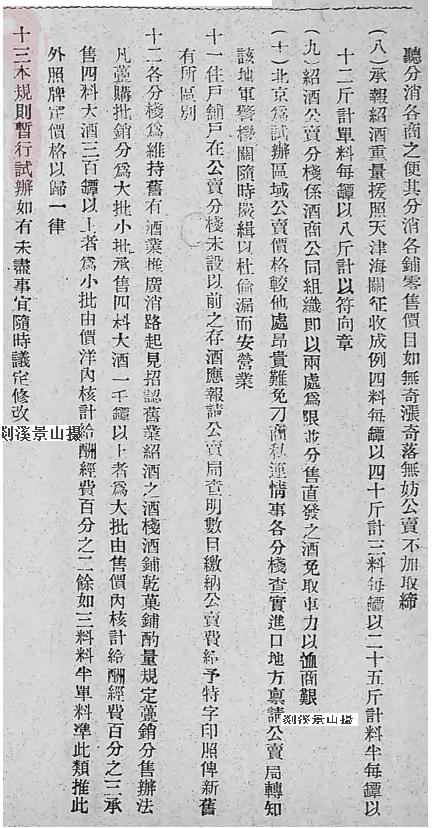 聽分消各商之便其分消各鋪零售價目如無奇漲奇落無妨公賣不加取締
(八)承報紹酒重量援照天津海關征收成例四料每罈以四十斤計三料每罈以二十五斤計料半每罈以
十二斤計單料每罈以八斤計以符向章
(九)紹酒公賣分棧係酒商公同組織即以兩處爲限並分售直發之酒免取車力以恤商艱
(十)北京爲試辦區域公賣價格較他處昂貴難免刁商私運情事各分棧查實進口地方禀請公賣局轉知
該地軍警機關隨時嚴緝以杜偸漏而安營業
十一住戶舖戶在公賣分棧未設以前之存酒應報請公賣局查明數目繳納公賣費給予特字印照俾新舊
有所區別
十二各分棧爲維持舊有酒業推廣消路起見招認舊業紹酒之酒棧酒鋪乾菓鋪酌量規定躉銷分售辦法
凡躉購批銷分爲大批小批承售四料大酒一千罈以上者爲大批由售價內核計給酬經費百分之三承
售四料大酒三百罈以上者爲小批由價洋內核計給酬經費百分之二餘如三料料半單料準此類推此
外照牌定價格以歸一律
十三本規則暫行試辦如有未盡事宜隨時議定修改
剡溪景山摄
剡溪景山摄